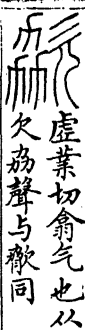 虛業切翕气也从
欠劦聲与同